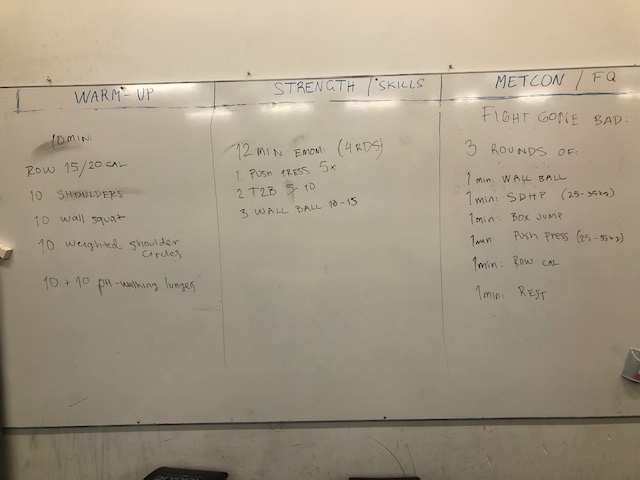 WARM-UP
10 min:
ROW 15/20 CAL
10 SHOULDERS
10 wall squat
10 weighted shoulder
circles
10 + 10 pH-walking lunges
STRENGTH / SKILLS
12 MIN EMOM: (4 RDS)
1 PUSH PRESS 5x
2 T2B 5-10
3 WALL BALL 10-15
METCON / FQ
FIGHT GONE BAD:
3 ROUNDS OF:
1 min: WALL BALL
1 min: SDHP (25-35kg)
1 min: BOX JUMP
1 min: Push press (25-35kg)
1 min: ROW CAL
1 min: REST